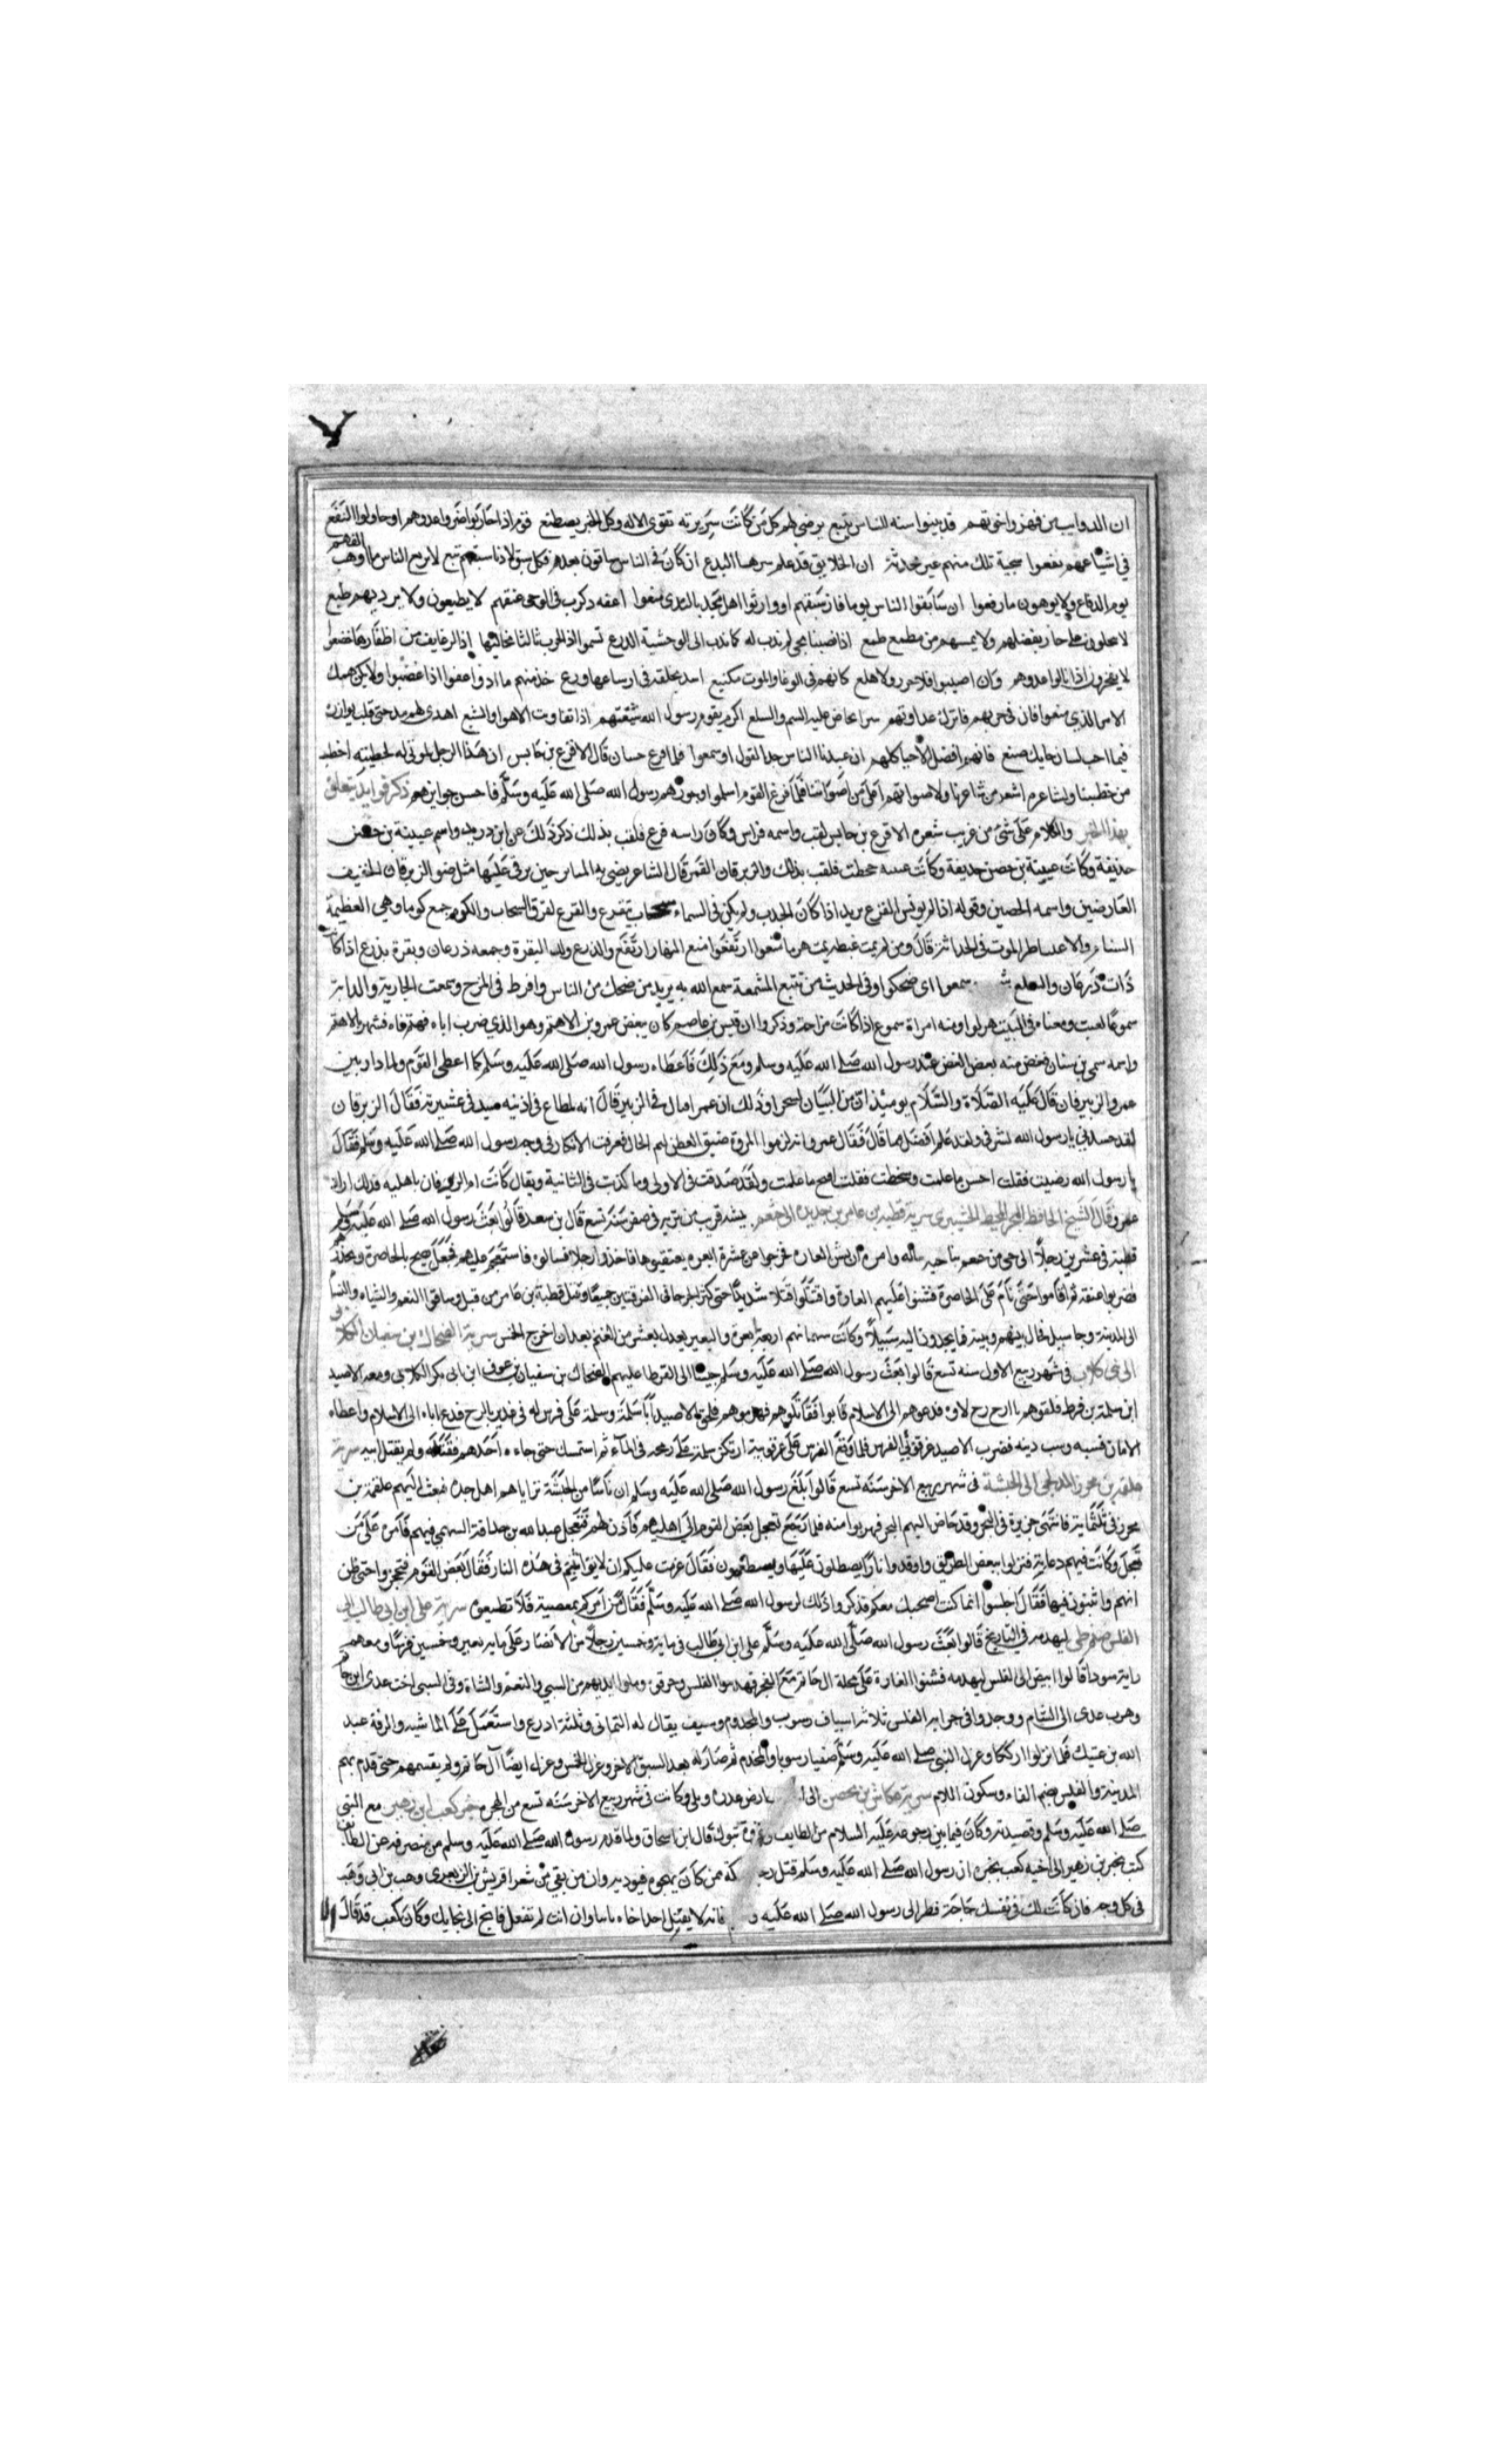 ان الذوايب من فهر واخوتهم قد بينوا سنه للناس تتبع يرضى لهم كل من كانت سريرته تقوى الاله وكل الخير يصطنع قوم اذا حاربوا ضروا عدوهم او حاولوا النفع
في اشياعهم نفعوا سجية تلك منهم غير محدثة ان الخلايق فد علم سرها البدع ان كان في الناس سباقون بعدهم فكل سبق لادنا سبقهم تبع لا يرفع الناس ما اوهت اكفهم
يوم الدفاع ولا يوهون ما رفعوا ان سابقوا الناس يوما فاز سبقهم او وارثوا اهل مجد بالندى منعوا اعفه ذكرت في الوحى عفتهم لا يطبعون ولا يرديهم طمع
لا يبخلون على جار بفضلهم ولا يمسهم من مطمع طبع اذا نصبنا لحي لم ندب له كما يدب الى الوحشية الذرع نسموا اذا الحرب نالتنا مخالبها اذا الزعانف من اظفارها خشعوا
لا يفخرون اذا نالوا عدوهم وان اصيبوا فلا خور ولا هلع كانهم في الوغا والموت مكتنع اسد بحلقة في ارساغها فدع خذ منهم ما اتوا عفوا اذا غضبوا ولا يكن همك
الامر الذي منعوا فان في حربهم فاترك عداوتهم سرا يخاض عليه السم والسلع اكرم بقوم رسول الله شيعتهم اذا تفاوت الاهوا والشيع اهدى لهم مدحتي قلب يوازره
فيما احب لسان حايك صنع فانهم افضل الاحيا كلهم ان جد بالناس جد القول او سمعوا فلما فرغ حسان قال الاقرع بن حابس ان هذا الرجل لموتى له لخطيبه اخطب
من خطيبنا ولشاعره اشعر من شاعرنا ولاصواتهم اعلى من اصواتنا فلما فرغ القوم اسلموا وجوزهم رسول الله صلى الله عليه وسلم فاحسن جوايزهم ذكر فوايد تتعلق
بهذا الخبر والكلام على شى من غريب شعره الاقرع بن حابس لقب واسمه فراس وكان راسه قرع فلقب بذلك ذكر ذلك عن ابن دريد واسم عيينة بن حصن
حذيفة وكانت عيينة بن حصن حذيفة وكانت عينه جحظت فلقب بذلك والزبرقان القمر قال الشاعر يضى به المنابر حين يرقى عليها مثل ضو الزبرقان الخفيف
العارضين واسمه الحصين وقوله اذا لم يونس القزع يريد اذا كان الجدب ولم يكن في السماء سحاب يتقزع والقزع تفرق السحاب والكوم جمع كوما وهي العظيمة
السنام والاعتباط الموت في الحداثة قال ومن لم يمت عبطة يمت هرما متعوا ارتفعوا متع النهار ارتفع والذرع ولد البقرة وجمعه ذرعان وبقرة مذرع اذا كانت
ذات ذرعان والسلع سمعوا اى ضحكوا وفي الحديث من تتبع المشمعة سمع الله به يريد من ضحك من الناس وافرط في المزح وسمعت الجارية والدابة
سموعا لعبت ومعناه في البيت هزلوا ومنه امراة سموع اذا كانت مزاحة وذكروا ان قيس بن عاصم كان يبغض عمرو بن الاهتم وهو الذي ضرب اباه فهتم فاه فشهر بالاهتم
واسمه سمي بن سنان فغض منه بعض الغض عند رسول الله صلى الله عليه وسلم ومع ذلك فاعطاه رسول الله صلى الله عليه وسلم كما اعطى القوم ولما دار بين
عمرو والزبرقان قال عليه الصلاة والسلام يومئذ ان من البيان لسحرا وذلك ان عمرا قال في الزبير قال انه لمطاع في اذنيه سيد في عشيرته فقال الزبرقان
لقد حسدني يا رسول الله لشرفي ولقد علم افضل مما قال فقال عمرو انه لزمرا المروة ضيق العطن ليم الخال فعرفت الانكار في وجه رسول الله صلى الله عليه وسلم فقال
يا رسول الله رضيت فقلت احسن ما علمت وسخطت فقلت اقبح ما علمت ولقد صدقت في الاولى وما كذبت في الثانية ويقال كانت ام الزبرقان باهلية فذلك اراد
عمرو قال الشيخ الحافظ سرية قطبة بن عامر بن حديدة الى خثعم بيشه قريب من تربه في صفر سنة تسع قال بن سعد قالوا بعث رسول الله صلى الله عليه وسلم
قطبة في عشرين رجلا الى حي من خثعم بناحية تباله وامره ان يشن الغارة فخرجوا من عشرة ابعرة يعتقبوها فاخذوا رجلا فسالوه فاستعجم عليهم فجعل يصيح بالحاضرة ويحذرهم
فضربوا عنقه ثم اقاموا حتى نام على الحاضرة فشنوا عليهم الغارة واقتتلوا قتالا شديدا حتى كثر الجرحا في الفريقين جميعا وقتل قطبة بن عامر من قتل وساقوا النعم والشياه والنسا
الى المدينة وجا سيل فحال بينهم وبينه فما يجدون اليه سبيلا وكانت سهمانهم اربعة ابعرة والبعير يعدل بعشر من الغنم بعد ان اخرج الخمس سرية الضحاك بن سفيان الكلابي
الى بني كلاب في شهر ربيع الاول سنه تسع قالوا بعث رسول الله صلى الله عليه وسلم جيشا الى القرطا عليهم الضحاك بن سفيان بن عوف ابن ابي بكر الكلابي ومعه الاصيد
ابن سلمة بن قرط فلقوهم بالزج زج لاوه فدعوهم الى الاسلام فابوا فقاتلوهم فهزموهم فلحق الاصيد اباه سلمة وسلمة على فرس له في غدير بالزج فدعا اباه الى الاسلام واعطاه
الامان فسبه وسب دينه فضرب الاصيد عرقوبي الفرس فلما وقع الفرس على عرقوبيه ارتكز سلمة على رمحه في الماء ثم استمسك حتى جاءه احدهم فقتله ولم يقتل ابنه سرية
علقمة بن مجزز المدلجي الى الحبشة في شهر ربيع الاخر سنه تسع قالوا بلغ رسول الله صلى الله عليه وسلم ان ناسا من الحبشة تراياهم اهل جده فبعث اليهم علقمة بن
مجزز في ثلثماية فانتهى جزيرة في البحر وقد خاض اليهم البحر فهربوا منه فلما رجع تعجل بعض القوم الى اهليهم فاذن لهم فتعجل عبد الله بن حذافة السهمي فيهم فامره على من
تعجل وكانت فيهم دعابة فنزلوا ببعض الطريق واوقدوا نارا يصطلون عليها ويصطنعون فقال عزمت عليكم ان لا تواثبتم في هذه النار فقال بعض القوم فتحجزوا حتى ظن
انهم واثبون فيها فقال اجلسوا انما كنت اضحك معكم فذكروا ذلك لرسول الله صلى الله عليه وسلم فقال من امركم بمعصية فلا تطيعوه سرية علي ابن ابي طالب الى
الفلس صنم طى ليهدمه في التاريخ قالوا بعث رسول الله صلى الله عليه وسلم علي ابن ابي طالب في ماية وخمسين رجلا من الانصار على ماية بعير وخمسين فرسا ومعهم
راية سودا قالوا ابيض الى الفلس ليهدمه فشنوا الغارة على محلة ال حاتم مع الفجر فهدموا الفلس وحرقوه وملوا ايديهم من السبي والنعم والشاة وفي السبى اخت عدي ابن حاتم
وهرب عدى الى الشام ووجدوا في خزانة الفلس ثلاثة اسياف رسوب والمخذوم وسيف يقال له اليماني وثلثة ادرع واستعمل على الماشية والرقة عبد
الله بن عتيك فلما نزلوا اركك وعزل النبي صلى الله عليه وسلم صفيا رسوبا والمخذم ثم صار له بعد السيف الاخر وعزل الخمس وعزل ايضا آل حاتم ولم يقسمهم حتى قدم بهم
المدينة والفلس بضم الفاء وسكون اللام سرية عكاشة بن محصن الى ارض عذرة وبلي وكانت في شهر ربيع الاخر سنه تسع من الهجرة خبر كعب ابن زهير مع النبي
صلى الله عليه وسلم وقصيدته وكان فيما بين رجوعه عليه السلام من الطايف وغزوة تبوك قال ابن اسحاق ولما قدم رسول الله صلى الله عليه وسلم من منصرفه عن الطايف
كتب بجير بن زهير الى اخيه كعب يخبره ان رسول الله صلى الله عليه وسلم قتل رجلا بمكة ممن كان يهجوه فيوديه وان من بقي من شعرا قريش بن الزبعرى وهب بن ابي وهب
في كل وجه فان كانت لك في نفسك حاجة فطر الى رسول الله صلى الله عليه و فانه لا يقتل احدا جاه تايبا وان انت لم تفعل فانج الى نجايك وكان كعب قد قال